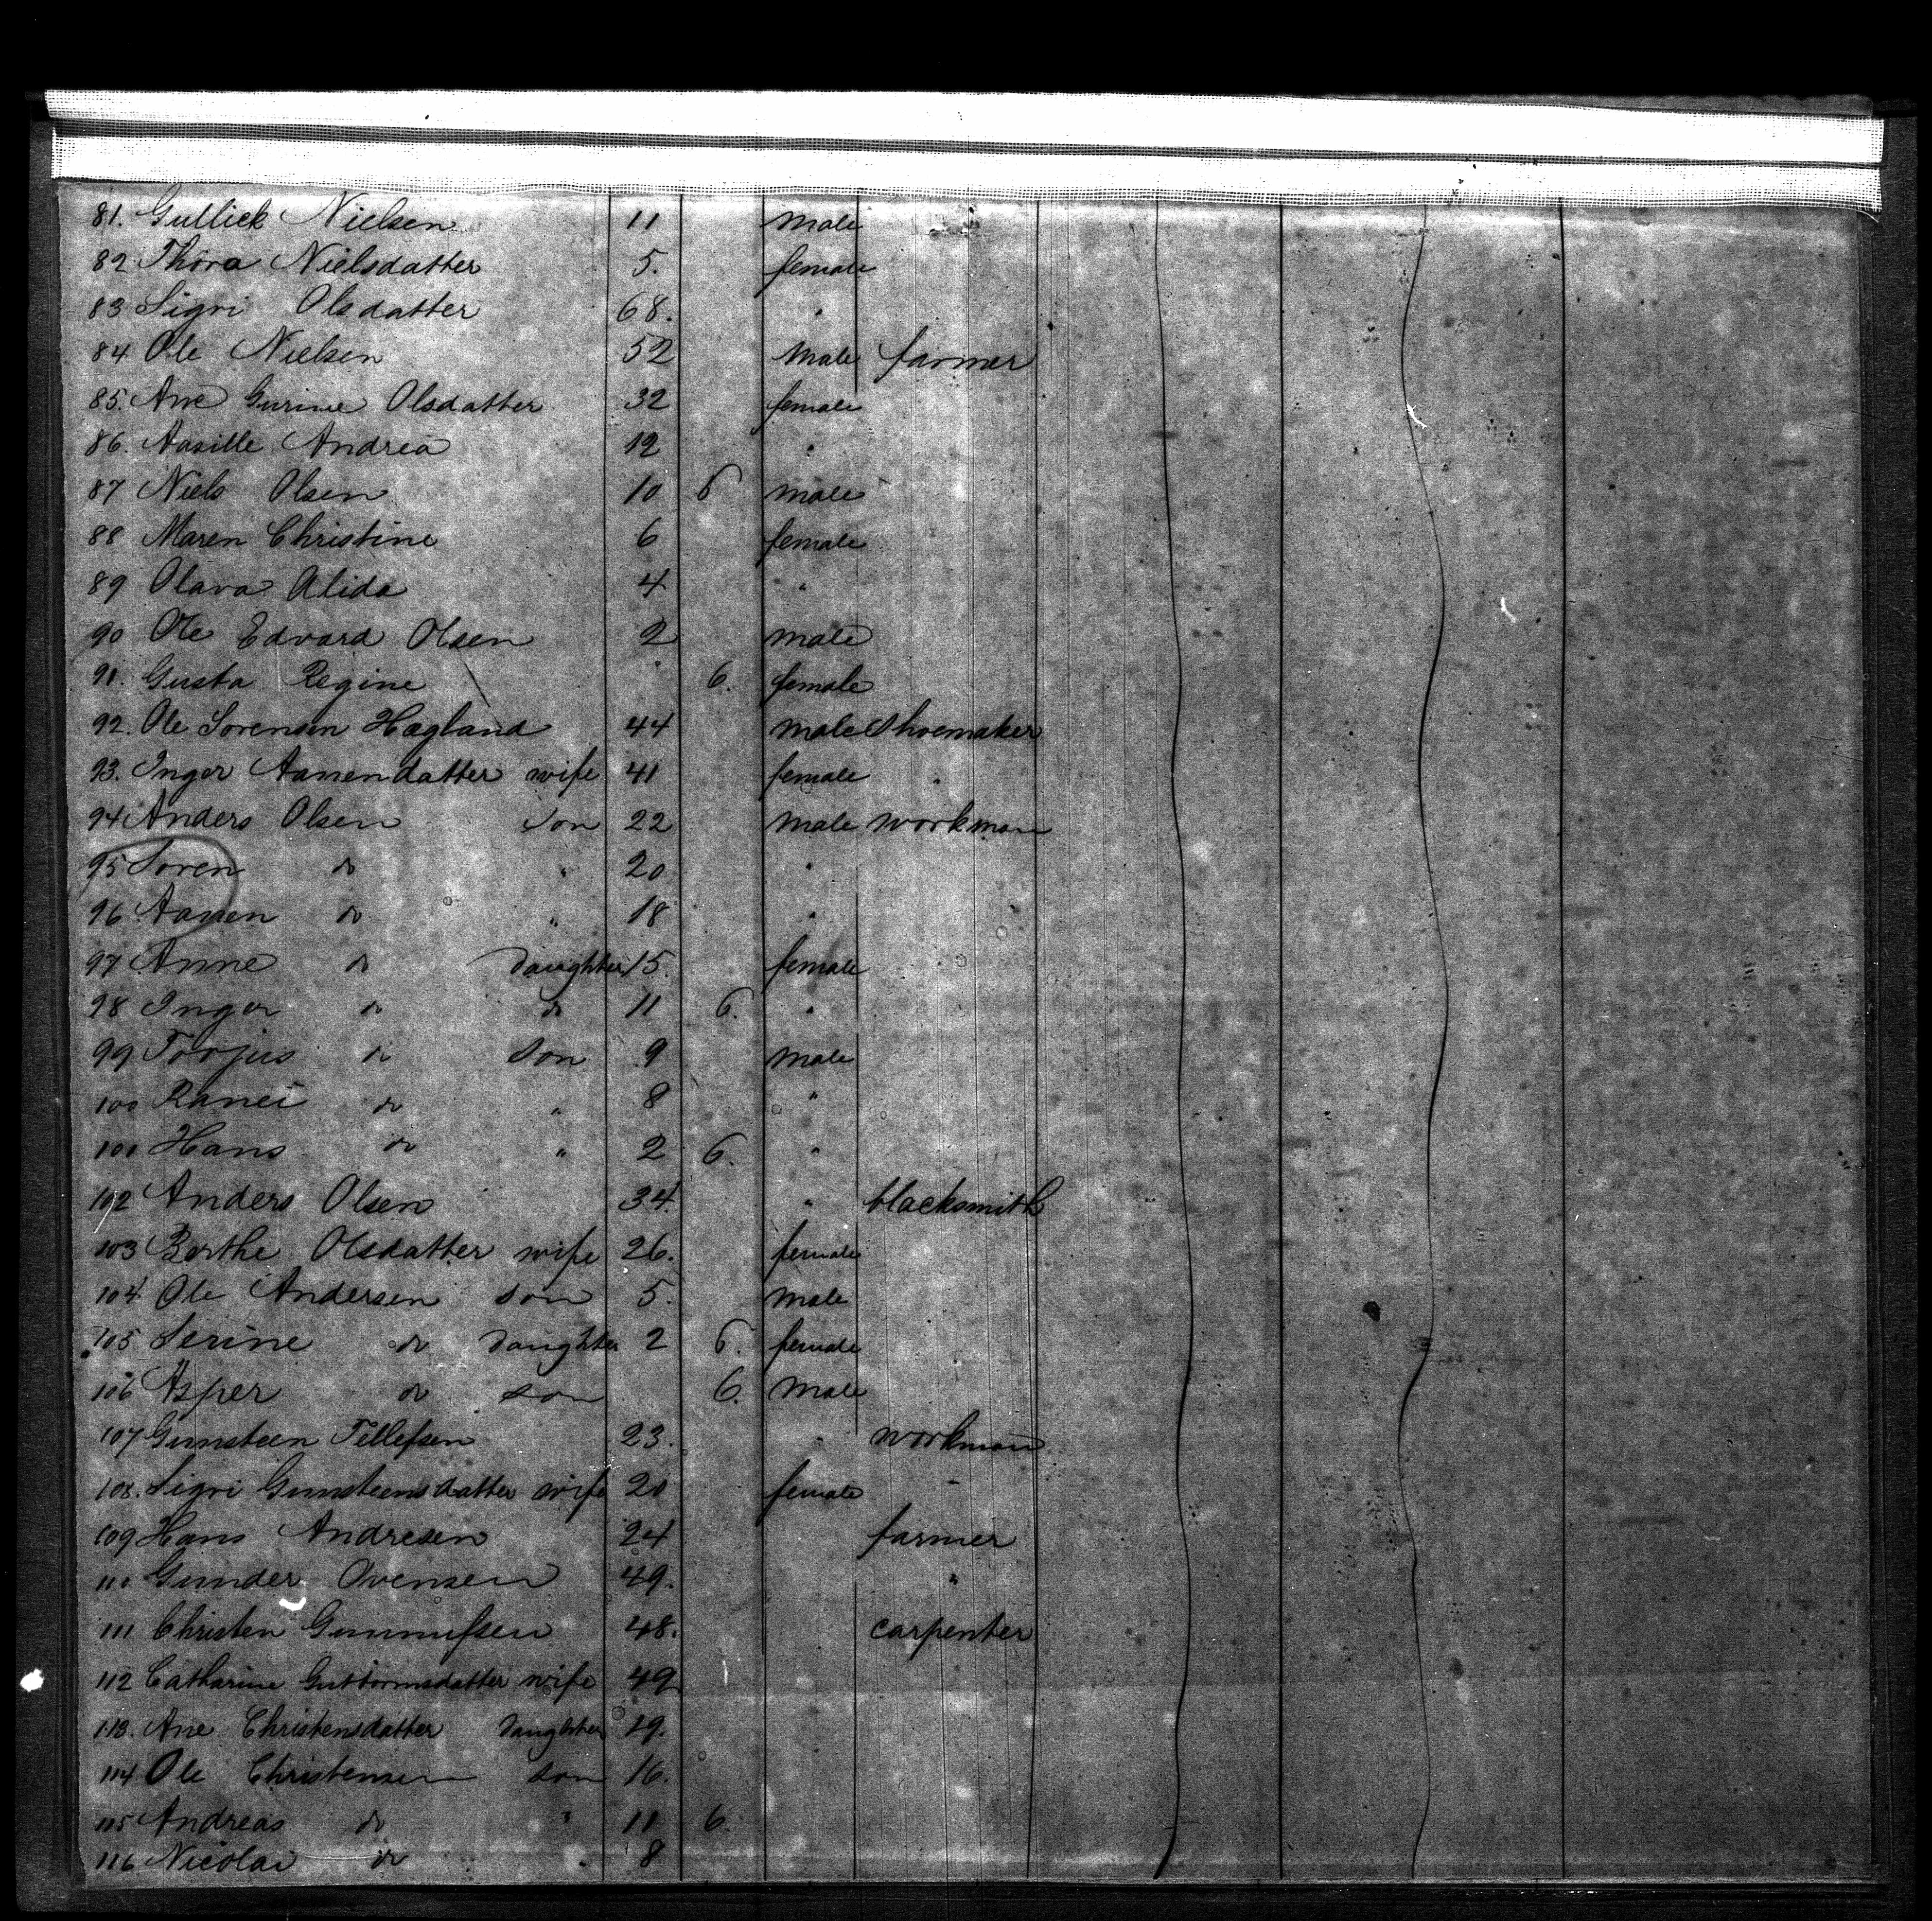 81. Gullick Nielsen 11 male
82 Thora Nielsdatter 5. female
83 Sigri Olsdatter 68. "
84 Ole Nielsen 52 Male farmer
85. Ane Gurine Olsdatter 32 female
86. Aasille Andrea 12 "
87 Niels Olsen 10 6 male
88 Maren Christine 6 female
89 Olava Alida 4 "
90 Ole Edvard Olsen 2 male
91. Gusta Regine 6. female
92. Ole Sorensen Hagland 44 male Shoemaker
93. Inger Aanendatter wife 41 female "
94 Anders Olsen Son 22 male workman
95 Soren do " 20 "
96 Aanen do " 18 "
97 Anne do Daughter 15. female
98 Inger do do 11 6. "
99 Torjus do Son 9 male
100 Ranei do " 8 "
101 Hans do " 2 6. "
102 Anders Olsen 34. " blacksmith
103 Berthe Olsdatter wife 26. female
104 Ole Andersen son 5. male
105 Serine do Daughter 2 6. female
106 Asper do son 6. Male
107 Gunsteen Tellefsen 23. " workman
108. Sigri Gunsteensdatter wife 20 female "
109 Hans Andresen 24 farmer
110 Gunder Ovensen 49. "
111 Christen Gunnufsen 48. carpenter
112 Catharine Guttormsdatter wife 49
113. Ane Christensdatter Daughter 19.
114 Ole Christensen son 16.
115 Andreas do " 11 6.
116 Nicolai do " 8